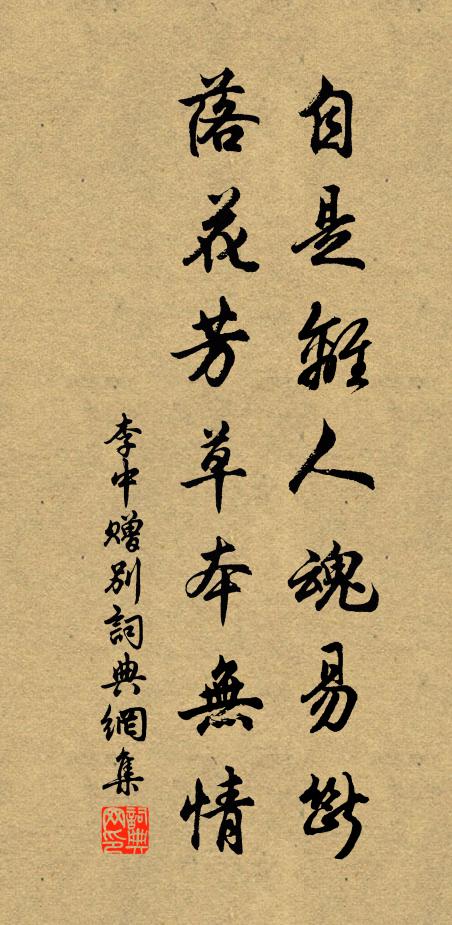 自是離人魂易斷
落花芳草本無情
李中贈別詞典網集
詞典網印